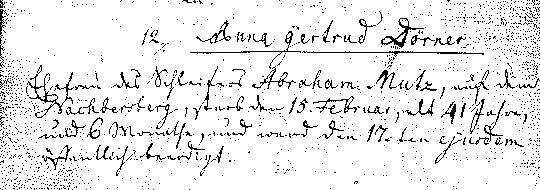 12. Anna Gertrud Dörner
Ehefrau des Schleifers Abraham Mutz, auf dem
Nachbersberg, starb den 15 Februar, alt 41 Jahre,
und 6 Monathe, und ward den 17-ten ejusdem
öffentlich beerdigt.